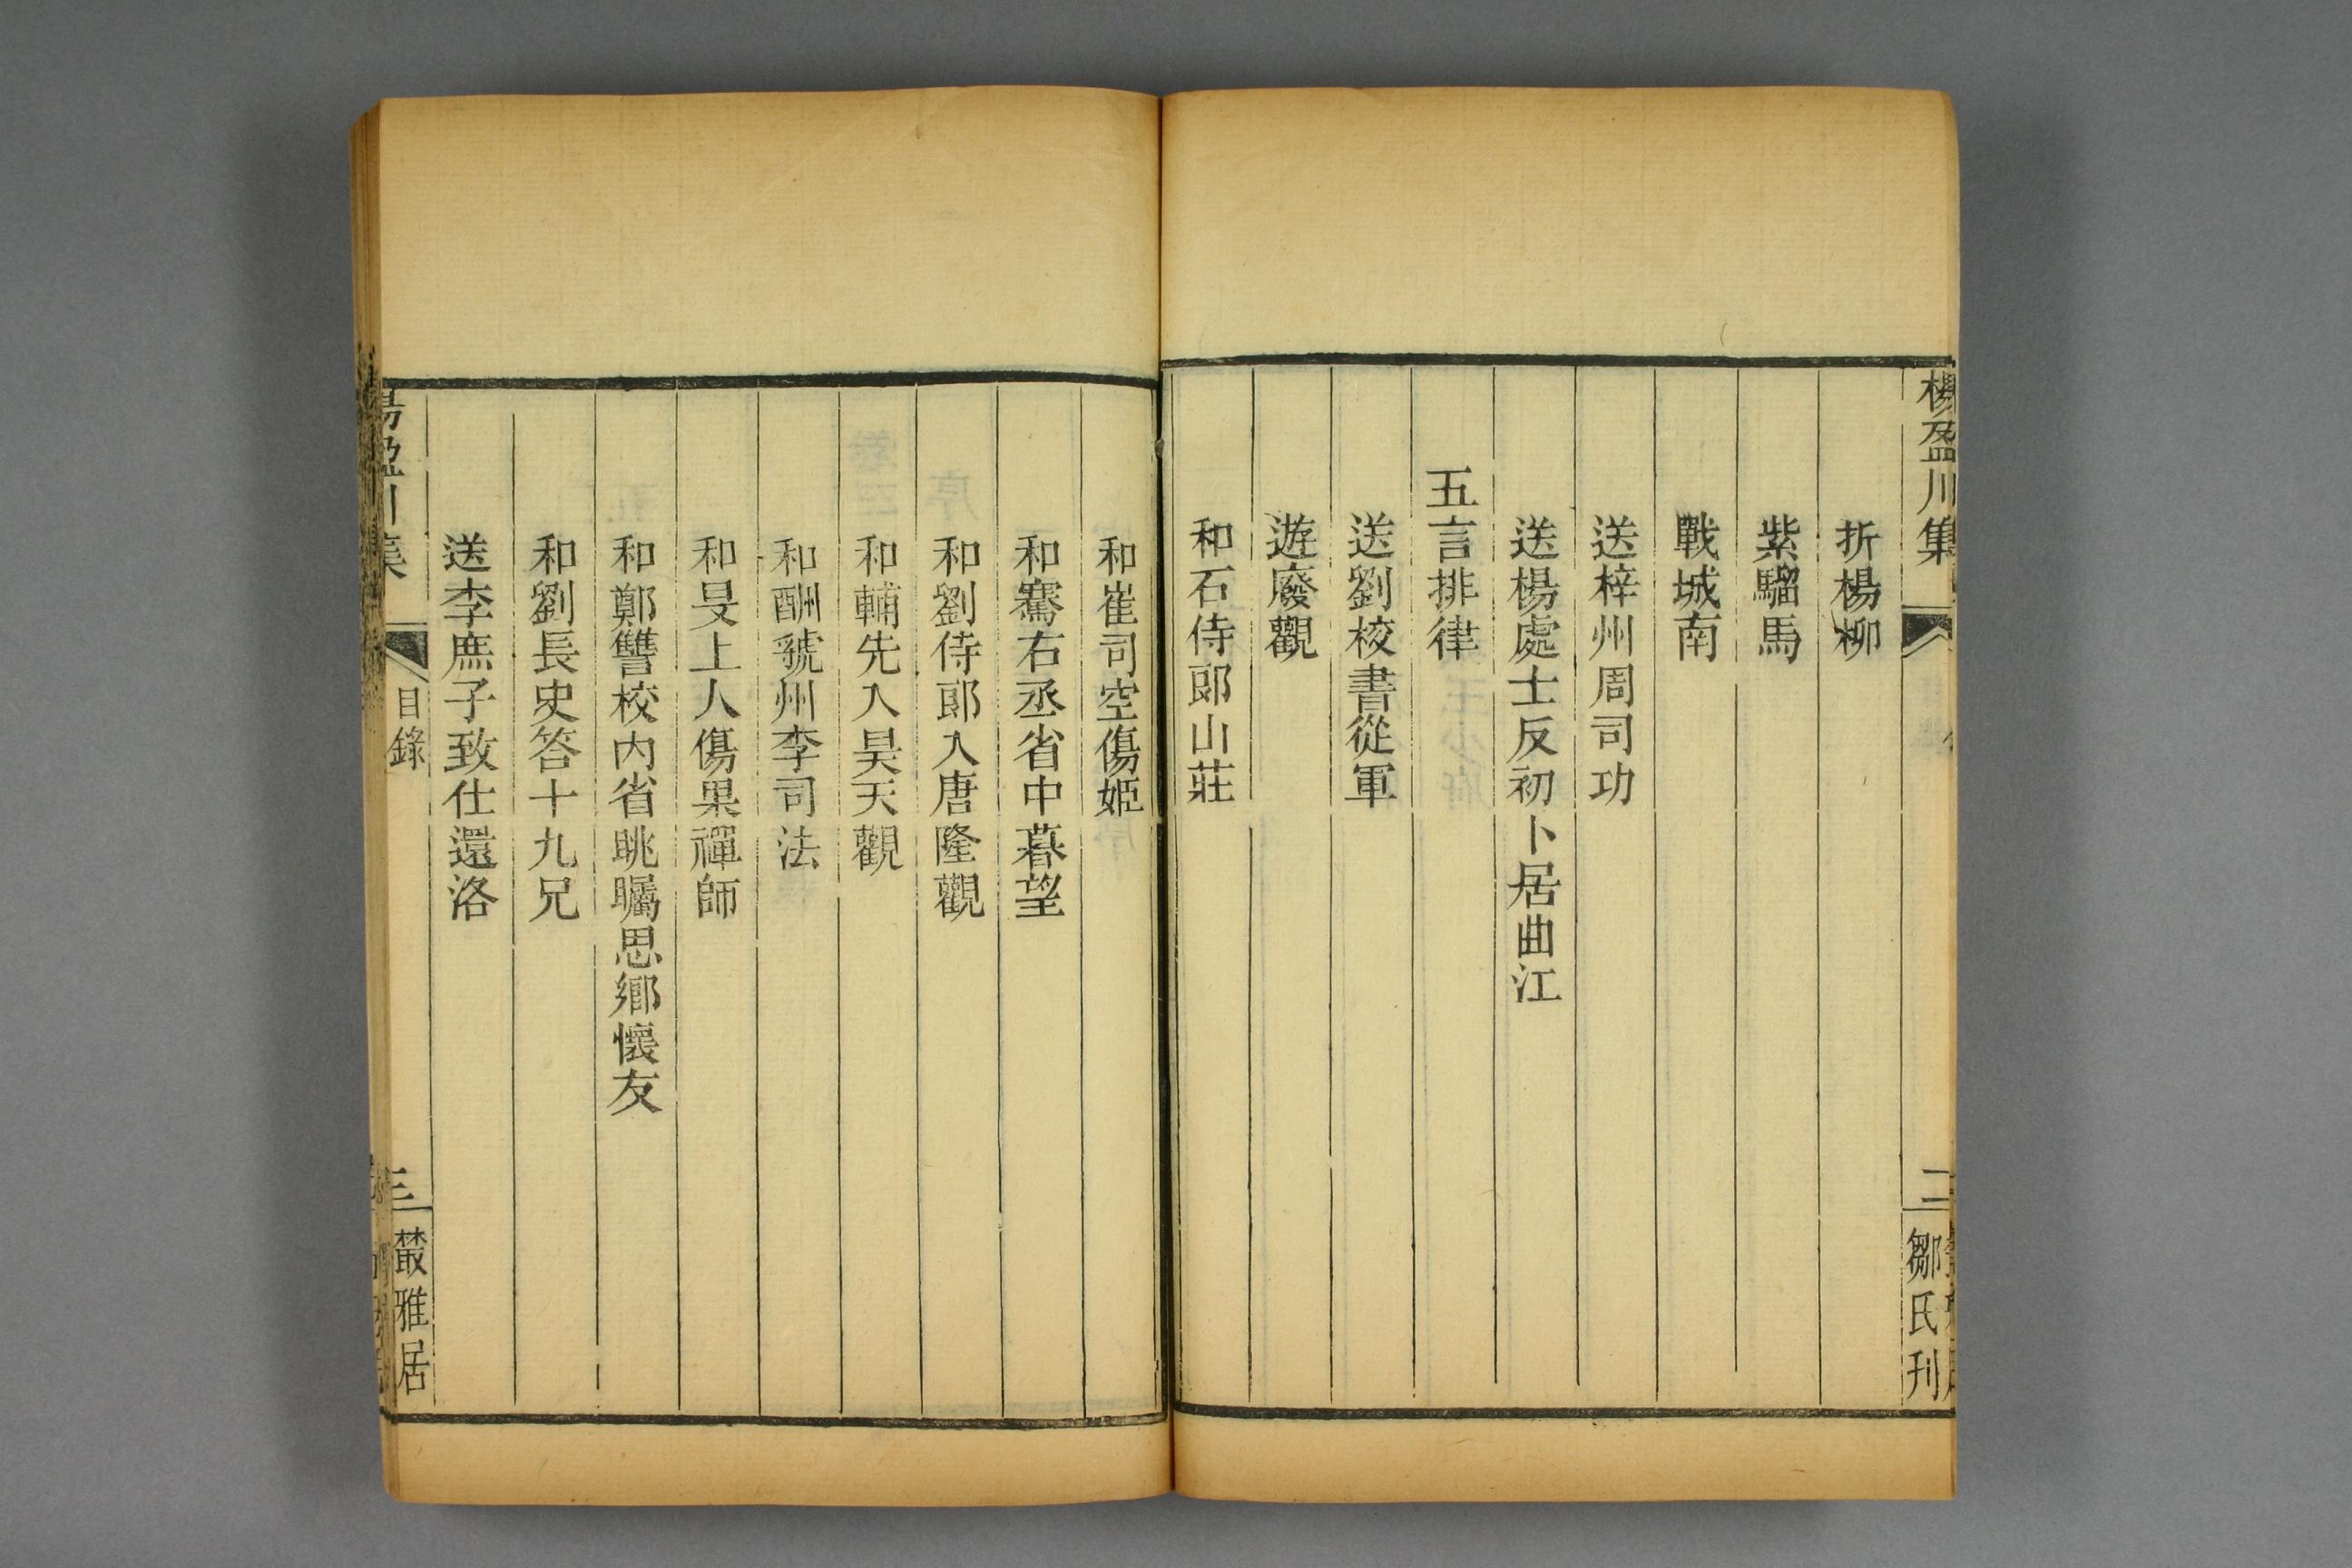 楊盈川集
二
鄒氏刊
折楊柳
紫騮馬
戰城南
送梓州周司功
送楊處士反初卜居曲江
五言排律
送劉校書從軍
遊廢觀
和石侍郎山莊
和崔司空傷姬
和騫右丞省中暮望
和劉侍郎入唐隆觀
和輔先入昊天觀
和酬虢州李司法
和旻上人傷果禪師
和鄭讐校內省眺矚思鄉懷友
和劉長史答十九兄
送李庶子致仕還洛
楊盈川集
目錄
三
叢雅居